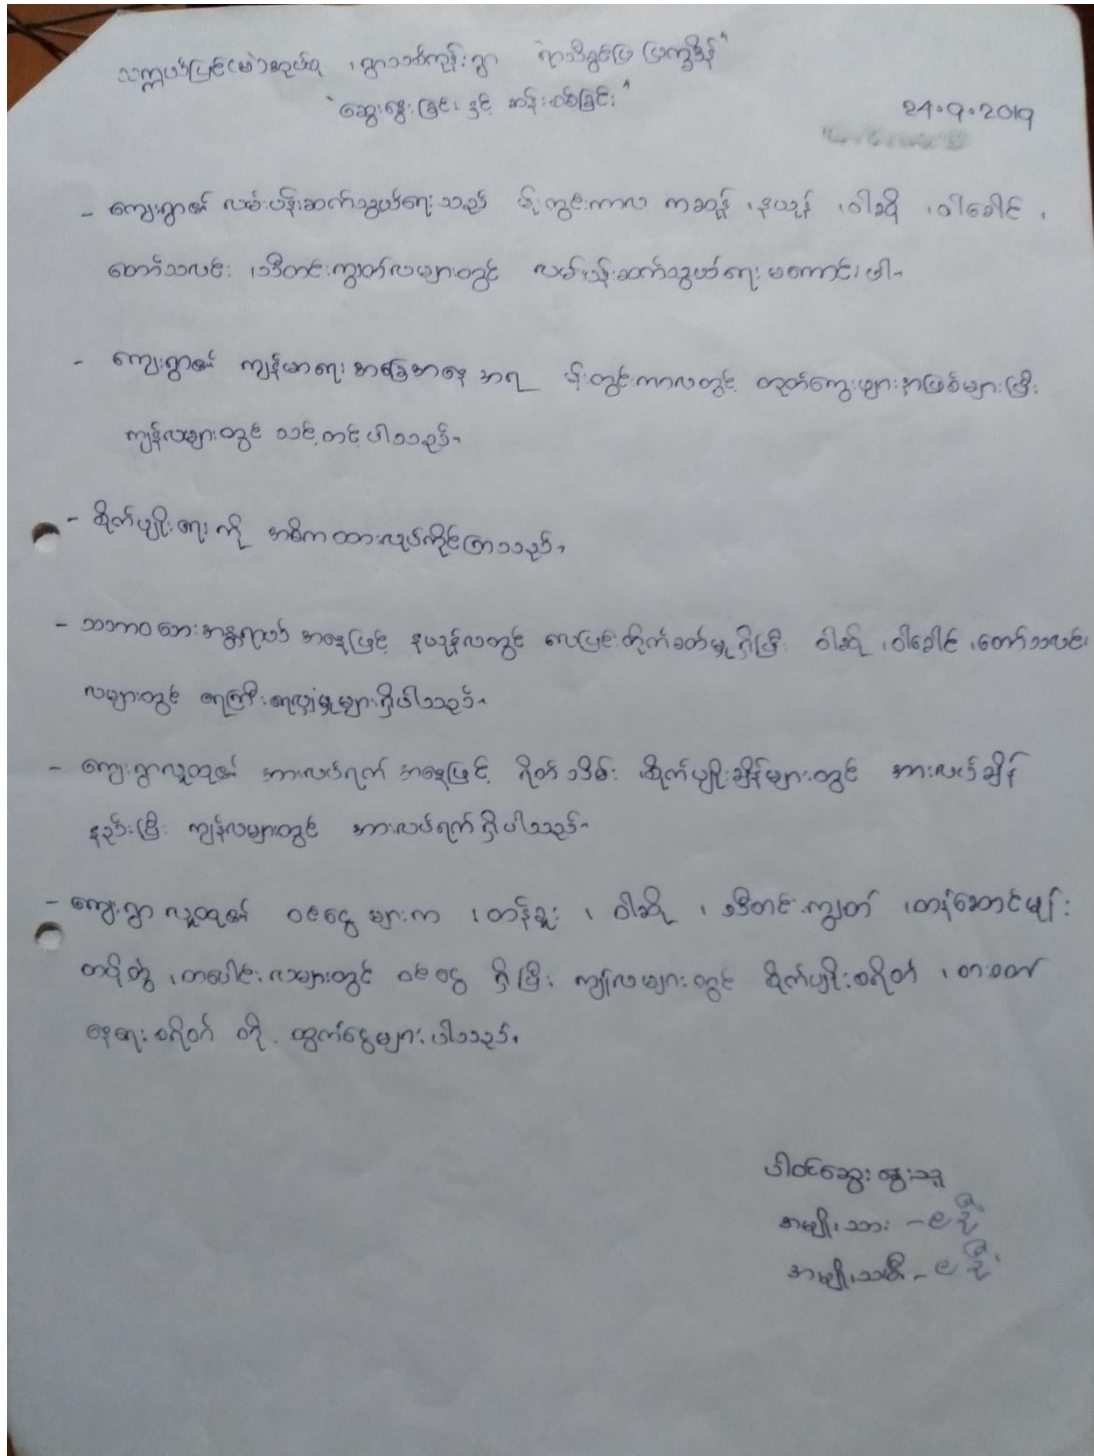 သက္ကယ်ပြင်(မဲ)အုပ်စု ၊ ရွာသစ်ကုန်းရွာ "ရာသီခွင်ပြ ပြက္ခဒိန်"
"ဆွေးနွေးခြင်း နှင့် ဆန်းစစ်ခြင်း"
24.9.2019
- ကျေးရွာ၏ လမ်းပန်းဆက်သွယ်ရေးသည် မိုးတွင်းကာလ ကဆုန် ၊ နယုန် ၊ ဝါဆို ၊ ဝါခေါင် ၊
တော်သလင်း ၊ သီတင်းကျွတ်လများတွင် လမ်းပန်းဆက်သွယ်ရေး မကောင်းပါ။
- ကျေးရွာ၏ ကျန်မာရေး အခြေအနေ အရ မိုးတွင်းကာလတွင် တုတ်ကွေးဖျားနာဖြစ်များပြီး
ကျန်လများတွင် သင့်တင့်ပါသည်။
- စိုက်ပျိုးရေးကို အဓိကထားလုပ်ကိုင်ကြသည်။
- သဘာဝဘေးအန္တရာယ် အနေဖြင့် နယုန်လတွင် လေပြင်းတိုက်ခတ်မှုရှိပြီး ဝါဆို ၊ ဝါခေါင် ၊ တော်သလင်း
လများတွင် ရေကြီးရေလျှံမှုများရှိပါသည်။
- ကျေးရွာလူထု၏ အားလပ်ရက် အနေဖြင့် ရိတ်သိမ်း စိုက်ပျိုးချိန်များတွင် အားလပ်ချိန်
နည်းပြီး ကျန်လများတွင် အားလပ်ရက်ရှိပါသည်။
- ကျေးရွာ လူထု၏ ဝင်ငွေ များက ၊ တန်ခူး ၊ ဝါဆို ၊ သီတင်းကျွတ် ၊ တန်ဆောင်မျန်း
တပို့တွဲ ၊ တပေါင်းလများတွင် ဝင်ငွေ ရှိပြီး ကျန်လများတွင် စိုက်ပျိုးစရိတ် ၊ စားဝတ်
နေရေးစရိတ် တို့ ထွက်ငွေများပါသည်။
ပါဝင်ဆွေးနွေးသူ
အမျိုးသား -
အမျိုးသမီး -